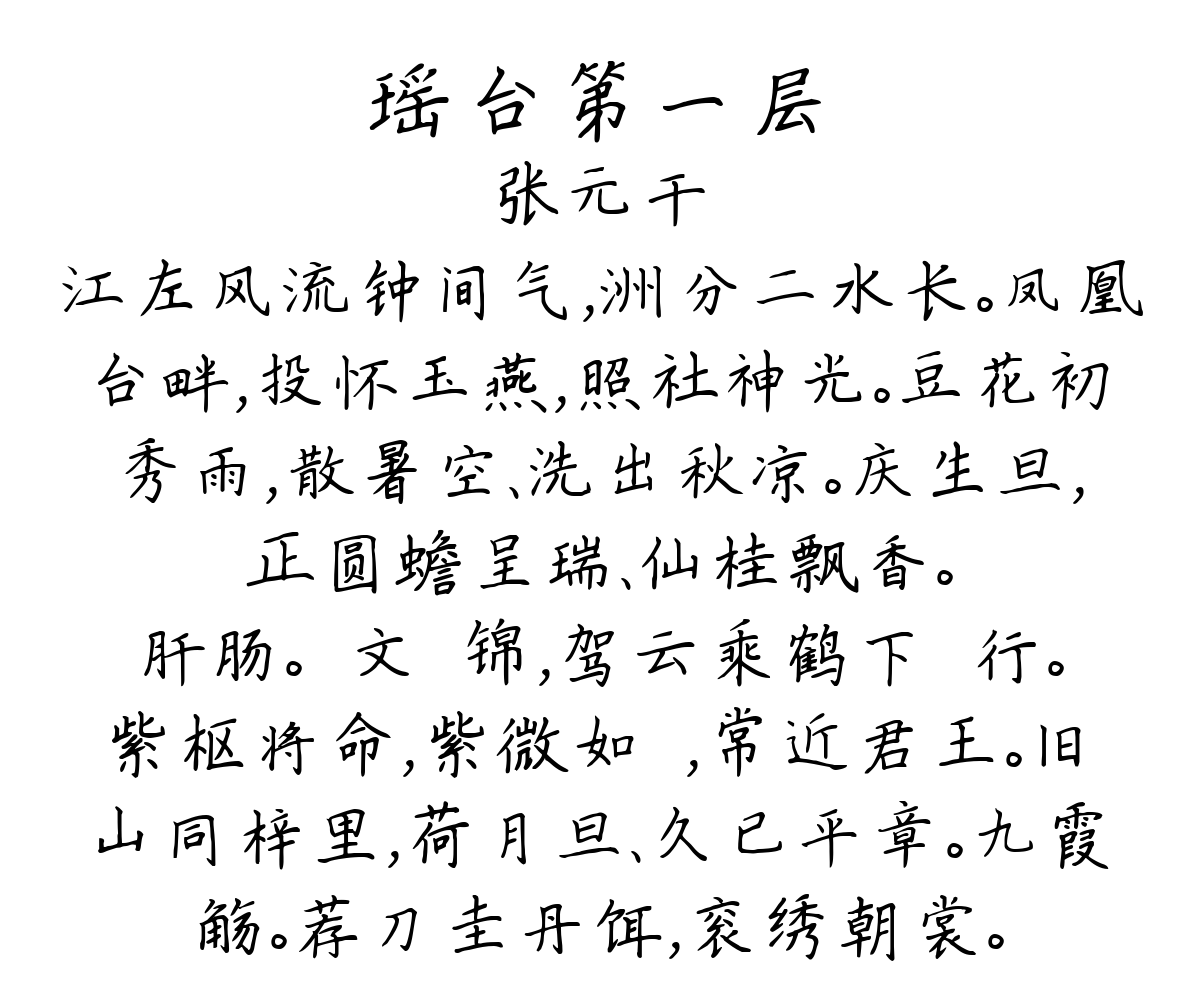 瑶台第一层
张元干
江左风流钟间气,洲分二水长。凤凰
台畔,投怀玉燕,照社神光。豆花初
秀雨,散暑空、洗出秋凉。庆生旦,
正圆蟾呈瑞、仙桂飘香。
肝肠。文 锦,驾云乘鹤下 行。
紫枢将命,紫微如 ,常近君王。旧
山同梓里,荷月旦、久已平章。九霞
觞。荐刀圭丹饵,衮绣朝裳。